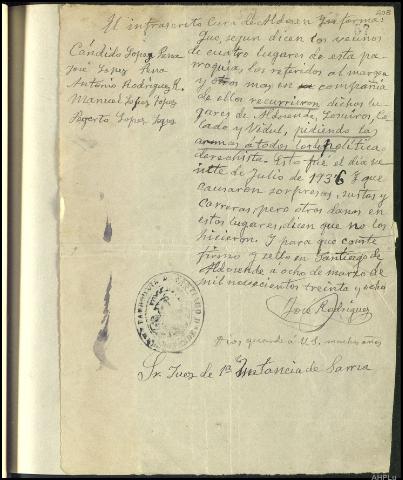 208
El infrascrito Cura de Aldosende informa:
Que, segun dicen los vecinos
de cuatro lugares de esta pa-
rroquia, los referidos al margen
y otros mas en compañia
de ellos recurrieron dichos lu-
gares de Aldosende,
lado y Vidul, pidiendo las
armas á todos los de politica
derechista. Esto fué el dia
de Julio de 1936 y que
causaron sorpresas, sustos y
carreras, pero otros danos en
estos lugares, dicen que no los
hicieron. Y para que conste
firmo y sello en Santiago de
Aldosende a ocho de marzo de
mil novecientos treinta y ocho
José Rodriguez
Cándido Lopez Perez
José Lopez Pena
Antonio Rodriguez R.
Manuel Lopez Lopez
Rogerto Lopez Lopez
Dios guarde á U.S. muchos años
Sr. Juez de 1ª Instancia de Sarria
AHPLu